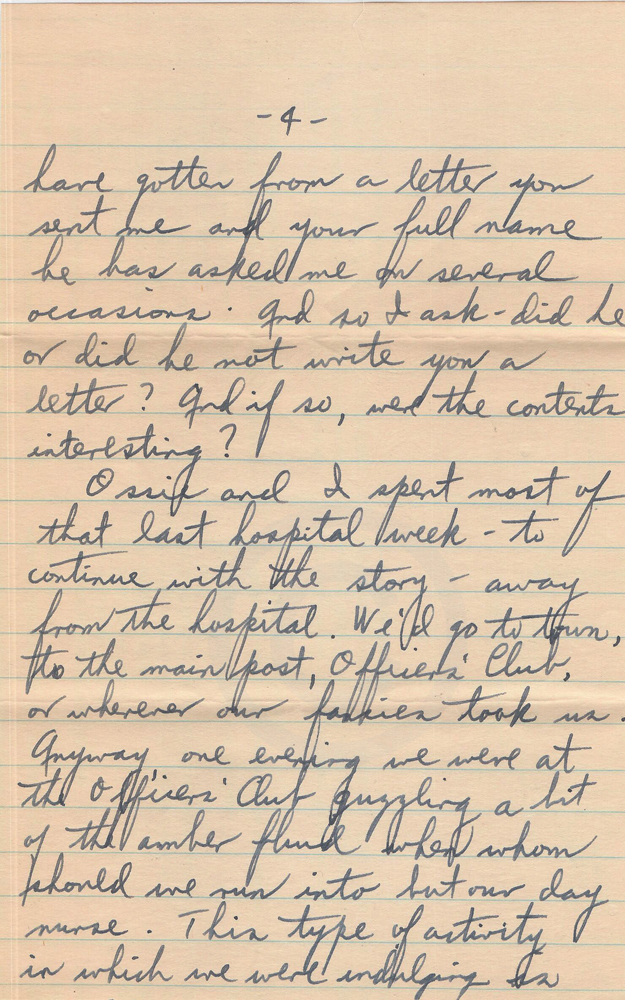 - 4 -
have gotten from a letter you
sent me and your full name
he has asked me on several
occasions. And so I ask - did he
or did he not write you a
letter? And if so, were the contents
interesting?
Ossip and I spent most of
that last hospital week - to
continue with the story - away
from the hospital. We'd go to town,
to the main post, Officers' Club,
or wherever our fancies took us.
Anyway, one evening we were at
the Officers' Club guzzling a bit
of the amber fluid when whom
should we run into but our day
nurse. This type of activity
in which we were indulging is